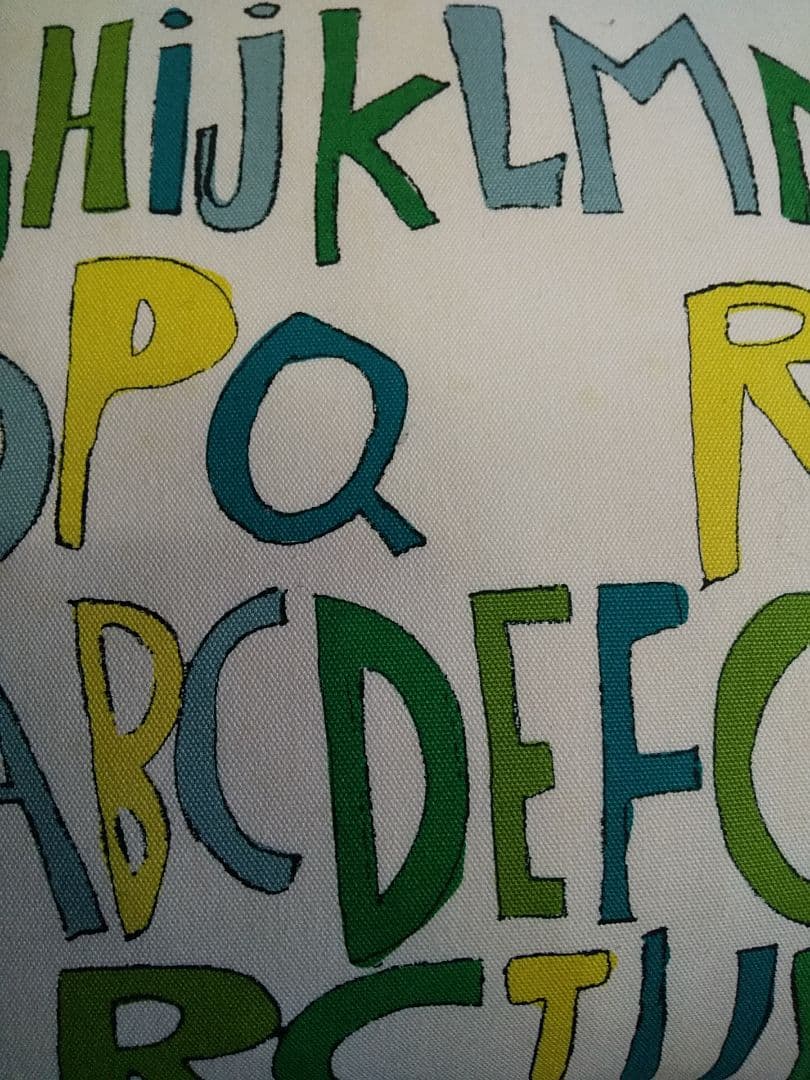 HijKLMN
OPQ R
ABCDEFG
RSTU